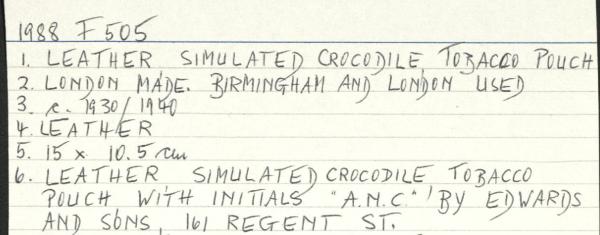 1988 F505
1. LEATHER SIMULATED CROCODILE TOBACCO POUCH
2. LONDON MADE. BIRMINGHAM AND LONDON USED
3. c. 1930/1940
4. LEATHER
5. 15 x 10.5 cm
6. LEATHER SIMULATED CROCODILE TOBACCO
POUCH WITH INITIALS "A.N.C." BY EDWARDS
AND SONS, 161 REGENT ST.